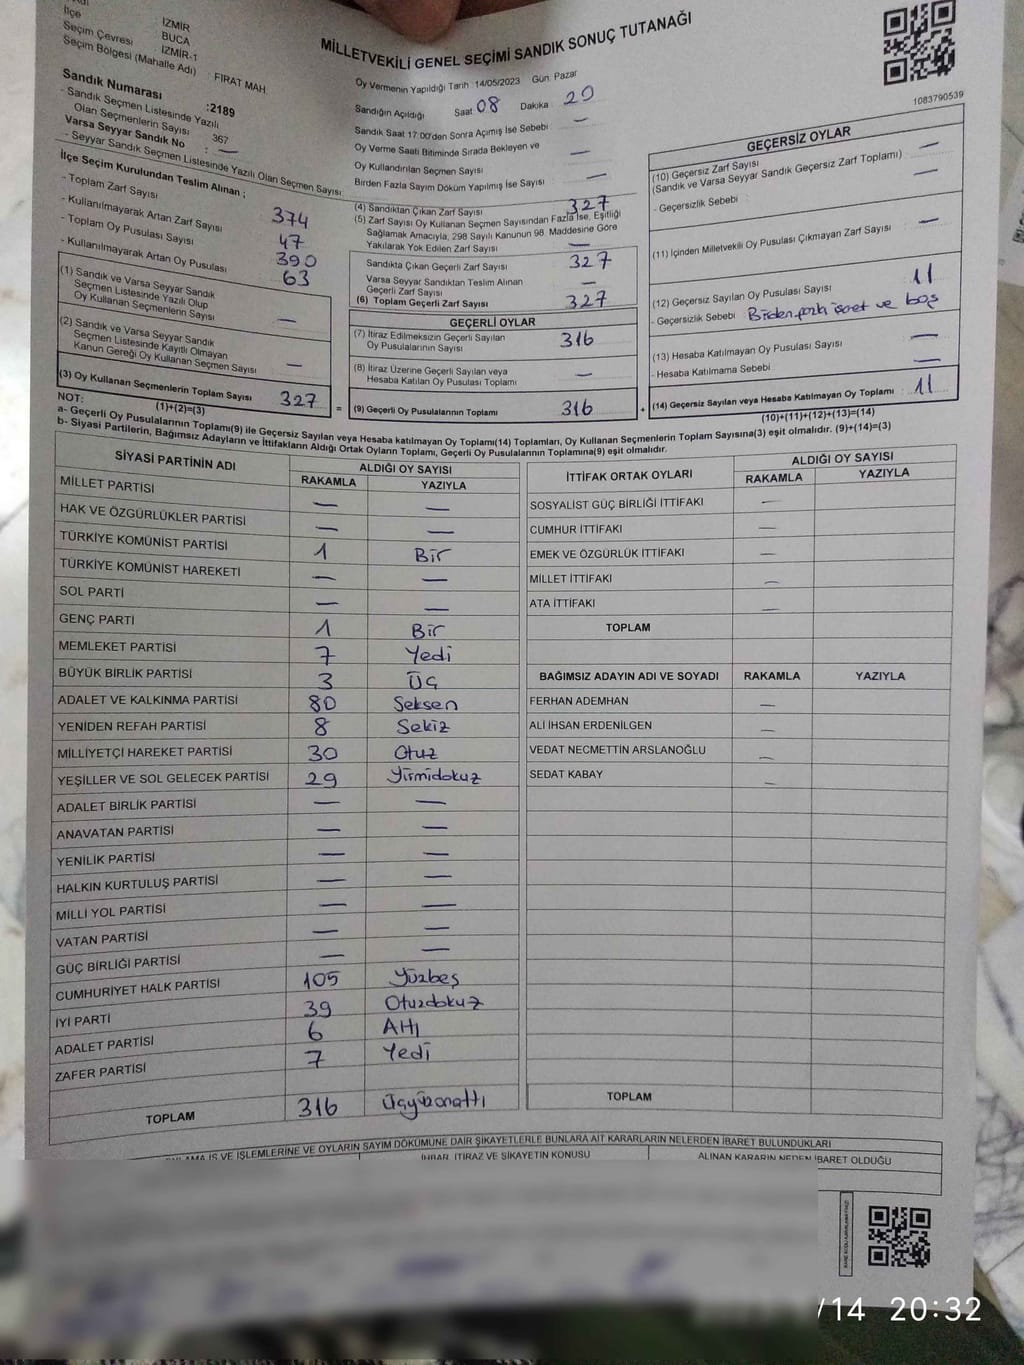 MİLLETVEKİLİ GENEL SEÇİMİ SANDIK SONUÇ TUTANAĞI
İlçe : İZMİR
Seçim Çevresi : BUCA
Seçim Bölgesi (Mahalle Adı) : İZMİR-1
: FIRAT MAH.
Sandık Numarası :2189
- Sandık Seçmen Listesinde Yazılı
Olan Seçmenlerin Sayısı 367
Varsa Seyyar Sandık No : —
- Seyyar Sandık Seçmen Listesinde Yazılı Olan Seçmen Sayısı
İlçe Seçim Kurulundan Teslim Alınan ;
- Toplam Zarf Sayısı 374
- Kullanılmayarak Artan Zarf Sayısı 47
- Toplam Oy Pusulası Sayısı 390
- Kullanılmayarak Artan Oy Pusulası 63
(1) Sandık ve Varsa Seyyar Sandık
Seçmen Listesinde Yazılı Olup
Oy Kullanan Seçmenlerin Sayısı —
(2) Sandık ve Varsa Seyyar Sandık
Seçmen Listesinde Kayıtlı Olmayan
Kanun Gereği Oy Kullanan Seçmen Sayısı —
(3) Oy Kullanan Seçmenlerin Toplam Sayısı 327
(1)+(2)=(3)
Oy Vermenin Yapıldığı Tarih :14/05/2023 Gün: Pazar
Sandığın Açıldığı Saat 08 Dakika 20
Sandık Saat 17:00'den Sonra Açımış İse Sebebi —
Oy Verme Saati Bitiminde Sırada Bekleyen ve
Oy Kullandırılan Seçmen Sayısı —
Birden Fazla Sayım Döküm Yapılmış İse Sayısı —
(4) Sandıktan Çıkan Zarf Sayısı 327
(5) Zarf Sayısı Oy Kullanan Seçmen Sayısından Fazla İse, Eşitliği
Sağlamak Amacıyla, 298 Sayılı Kanunun 98. Maddesine Göre
Yakılarak Yok Edilen Zarf Sayısı —
Sandıkta Çıkan Geçerli Zarf Sayısı 327
Varsa Seyyar Sandıktan Teslim Alınan
Geçerli Zarf Sayısı —
(6) Toplam Geçerli Zarf Sayısı 327
GEÇERLİ OYLAR
(7) İtiraz Edilmeksizin Geçerli Sayılan
Oy Pusulalarının Sayısı 316
(8) İtiraz Üzerine Geçerli Sayılan veya
Hesaba Katılan Oy Pusulası Toplamı —
= (9) Geçerli Oy Pusulalarının Toplamı 316
1083790539
GEÇERSİZ OYLAR
(10) Geçersiz Zarf Sayısı —
(Sandık ve Varsa Seyyar Sandık Geçersiz Zarf Toplamı) —
- Geçersizlik Sebebi :
(11) İçinden Milletvekili Oy Pusulası Çıkmayan Zarf Sayısı —
(12) Geçersiz Sayılan Oy Pusulası Sayısı 11
- Geçersizlik Sebebi Birden fazla işaret ve boş
(13) Hesaba Katılmayan Oy Pusulası Sayısı —
- Hesaba Katılmama Sebebi —
+ (14) Geçersiz Sayılan veya Hesaba Katılmayan Oy Toplamı 11
(10)+(11)+(12)+(13)=(14)
NOT:
a- Geçerli Oy Pusulaları Toplamı(9) ile Geçersiz Sayılan veya Hesaba katılmayan Oy Toplamı(14) Toplamları, Oy Kullanan Seçmenlerin Toplam Sayısına(3) eşit olmalıdır. (9)+(14)=(3)
b- Siyasi Partilerin, Bağımsız Adayların ve İttifakların Aldığı Ortak Oyların Toplamı, Geçerli Oy Pusulalarının Toplamına(9) eşit olmalıdır.
SİYASİ PARTİNİN ADI ALDIĞI OY SAYISI
RAKAMLA YAZIYLA
MİLLET PARTİSİ — —
HAK VE ÖZGÜRLÜKLER PARTİSİ — —
TÜRKİYE KOMÜNİST PARTİSİ 1 Bir
TÜRKİYE KOMÜNİST HAREKETİ — —
SOL PARTİ — —
GENÇ PARTİ 1 Bir
MEMLEKET PARTİSİ 7 Yedi
BÜYÜK BİRLİK PARTİSİ 3 Üç
ADALET VE KALKINMA PARTİSİ 80 Seksen
YENİDEN REFAH PARTİSİ 8 Sekiz
MİLLİYETÇİ HAREKET PARTİSİ 30 Otuz
YEŞİLLER VE SOL GELECEK PARTİSİ 29 Yirmidokuz
ADALET BİRLİK PARTİSİ — —
ANAVATAN PARTİSİ — —
YENİLİK PARTİSİ — —
HALKIN KURTULUŞ PARTİSİ — —
MİLLİ YOL PARTİSİ — —
VATAN PARTİSİ — —
GÜÇ BİRLİĞİ PARTİSİ — —
CUMHURİYET HALK PARTİSİ 105 Yüzbeş
İYİ PARTİ 39 Otuzdokuz
ADALET PARTİSİ 6 Altı
ZAFER PARTİSİ 7 Yedi
TOPLAM 316 Üçyüzonaltı
İTTİFAK ORTAK OYLARI ALDIĞI OY SAYISI
RAKAMLA YAZIYLA
SOSYALİST GÜÇ BİRLİĞİ İTTİFAKI —
CUMHUR İTTİFAKI —
EMEK VE ÖZGÜRLÜK İTTİFAKI —
MİLLET İTTİFAKI —
ATA İTTİFAKI —
TOPLAM
BAĞIMSIZ ADAYIN ADI VE SOYADI RAKAMLA YAZIYLA
FERHAN ADEMHAN —
ALİ İHSAN ERDENİLGEN —
VEDAT NECMETTİN ARSLANOĞLU —
SEDAT KABAY —
TOPLAM
İŞ VE İŞLEMLERİNE VE OYLARIN SAYIM DÖKÜMÜNE DAİR ŞİKAYETLERLE BUNLARA AİT KARARLARIN NELERDEN İBARET BULUNDUKLARI
İHBAR, İTİRAZ VE ŞİKAYETİN KONUSU ALINAN KARARIN NEDEN İBARET OLDUĞU
/14 20:32